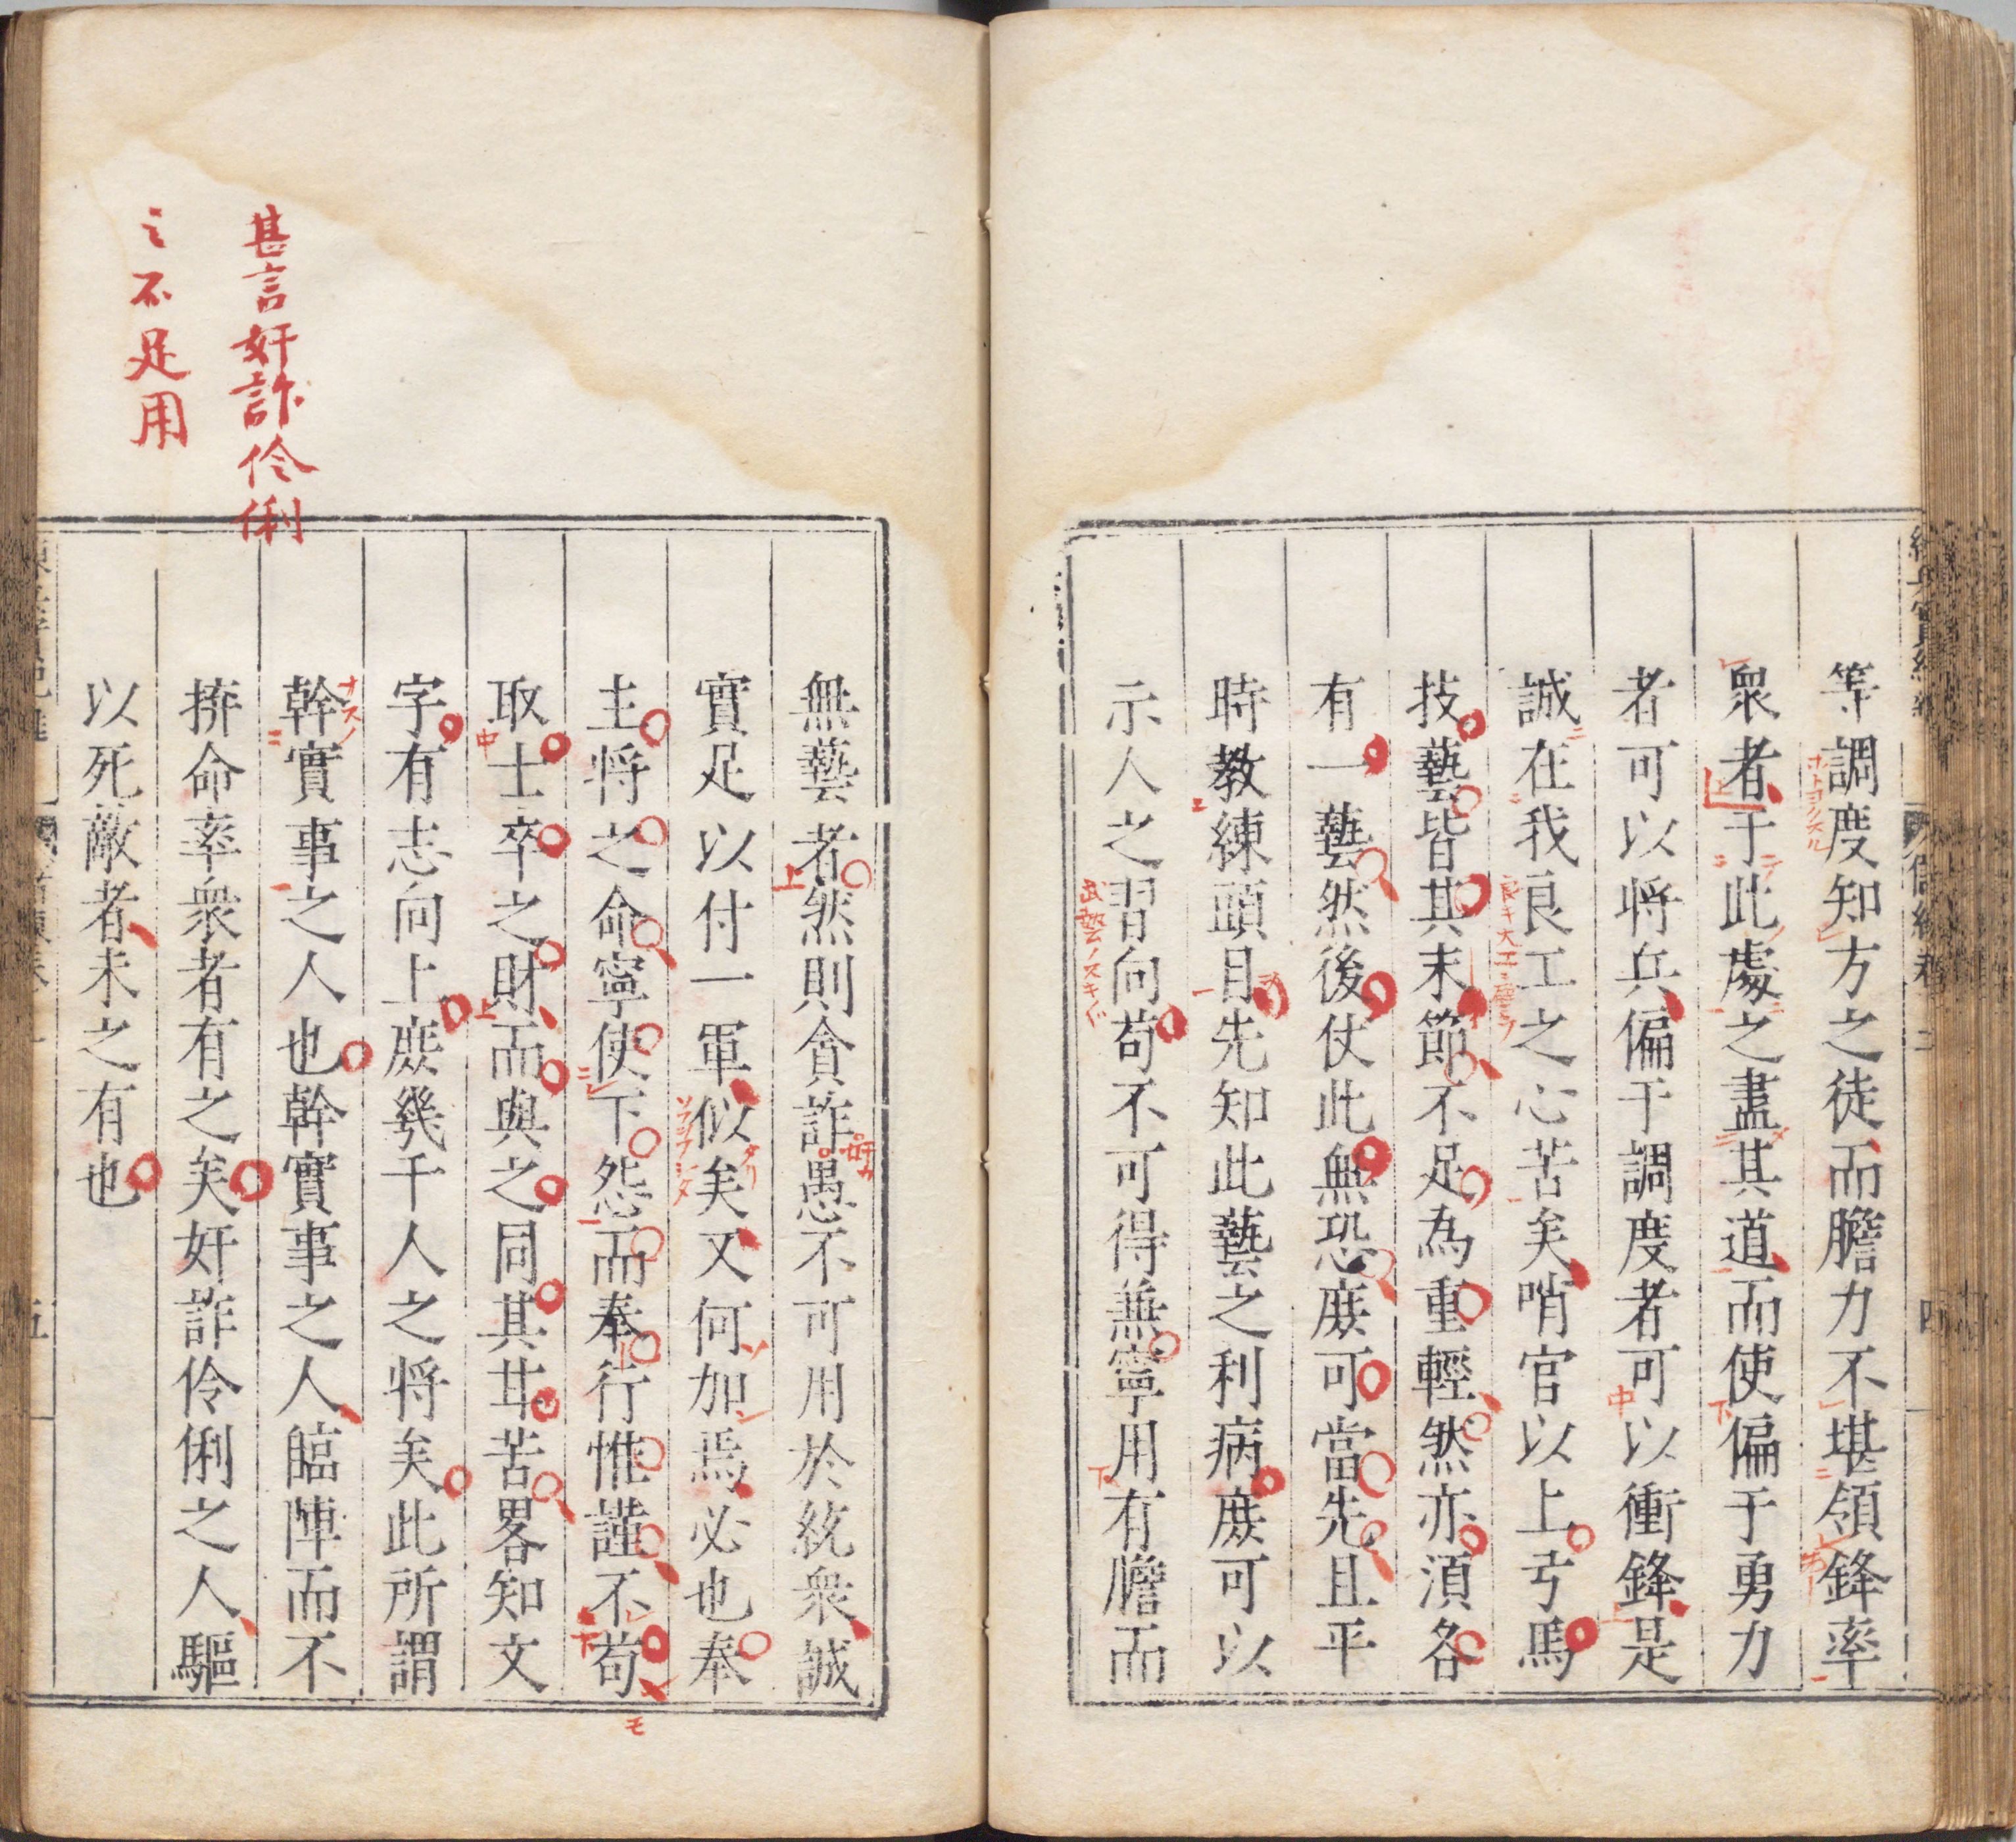 等調度知方之徒而膽力不堪領鋒率
衆者于此處之盡其道而使偏于勇力
者可以將兵偏于調度者可以衝鋒是
誠在我良工之心苦矣哨官以上弓馬
技藝皆其末節不足為重輕然亦須各
有一藝然後仗此無恐庻可當先且平
時教練頭目先知此藝之利病庻可以
示人之習向苟不可得兼寧用有膽而
無藝者然則貪詐愚不可用於統衆誠
實足以付一軍似矣又何加焉必也奉
主將之命寧使下怨而奉行惟謹不苟
取士卒之財而與之同其甘苦畧知文
字有志向上庻幾千人之將矣此所謂
幹實事之人也幹實事之人臨陣而不
拚命率衆者有之矣奸詐伶俐之人驅
以死敵者未之有也
甚言奸詐伶俐
之不足用